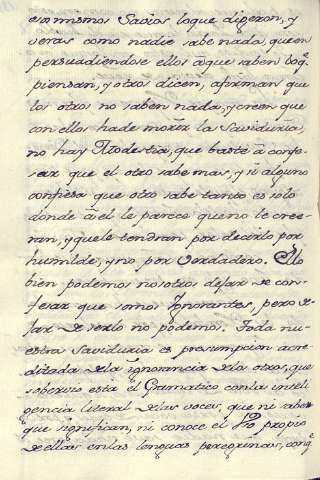 esos mismos Savios loque digeron, y
veras como nadie sabe nada, que en
persuadiendose ellos àque saben loq.
piensan, y otros dicen, afirman que
los otro no saben nada, y creen que
con ellos hade morir la Saviduria,
no hay Modestia, que baste à confe-
sar que el otro sabe mas, y si alguno
confiesa que otro sabe tanto es solo
donde à el le parece que no le cree-
ran, y quele tendran por decirlo por
humilde, y no por verdadero. Ello
bien podemos nosotros dejar de con-
fesar que somos Ignorantes, pero de
jar de serlo no podemos. Toda nu-
estra Saviduria es presumpcion acre-
ditada dela ignorancia delos otros, que
sobervio està el Gramatico conla inteli
gencia literal delas voces, que ni saben
que significan, ni conoce el propio
de ellas enlas lenguas peregrinas, conq.